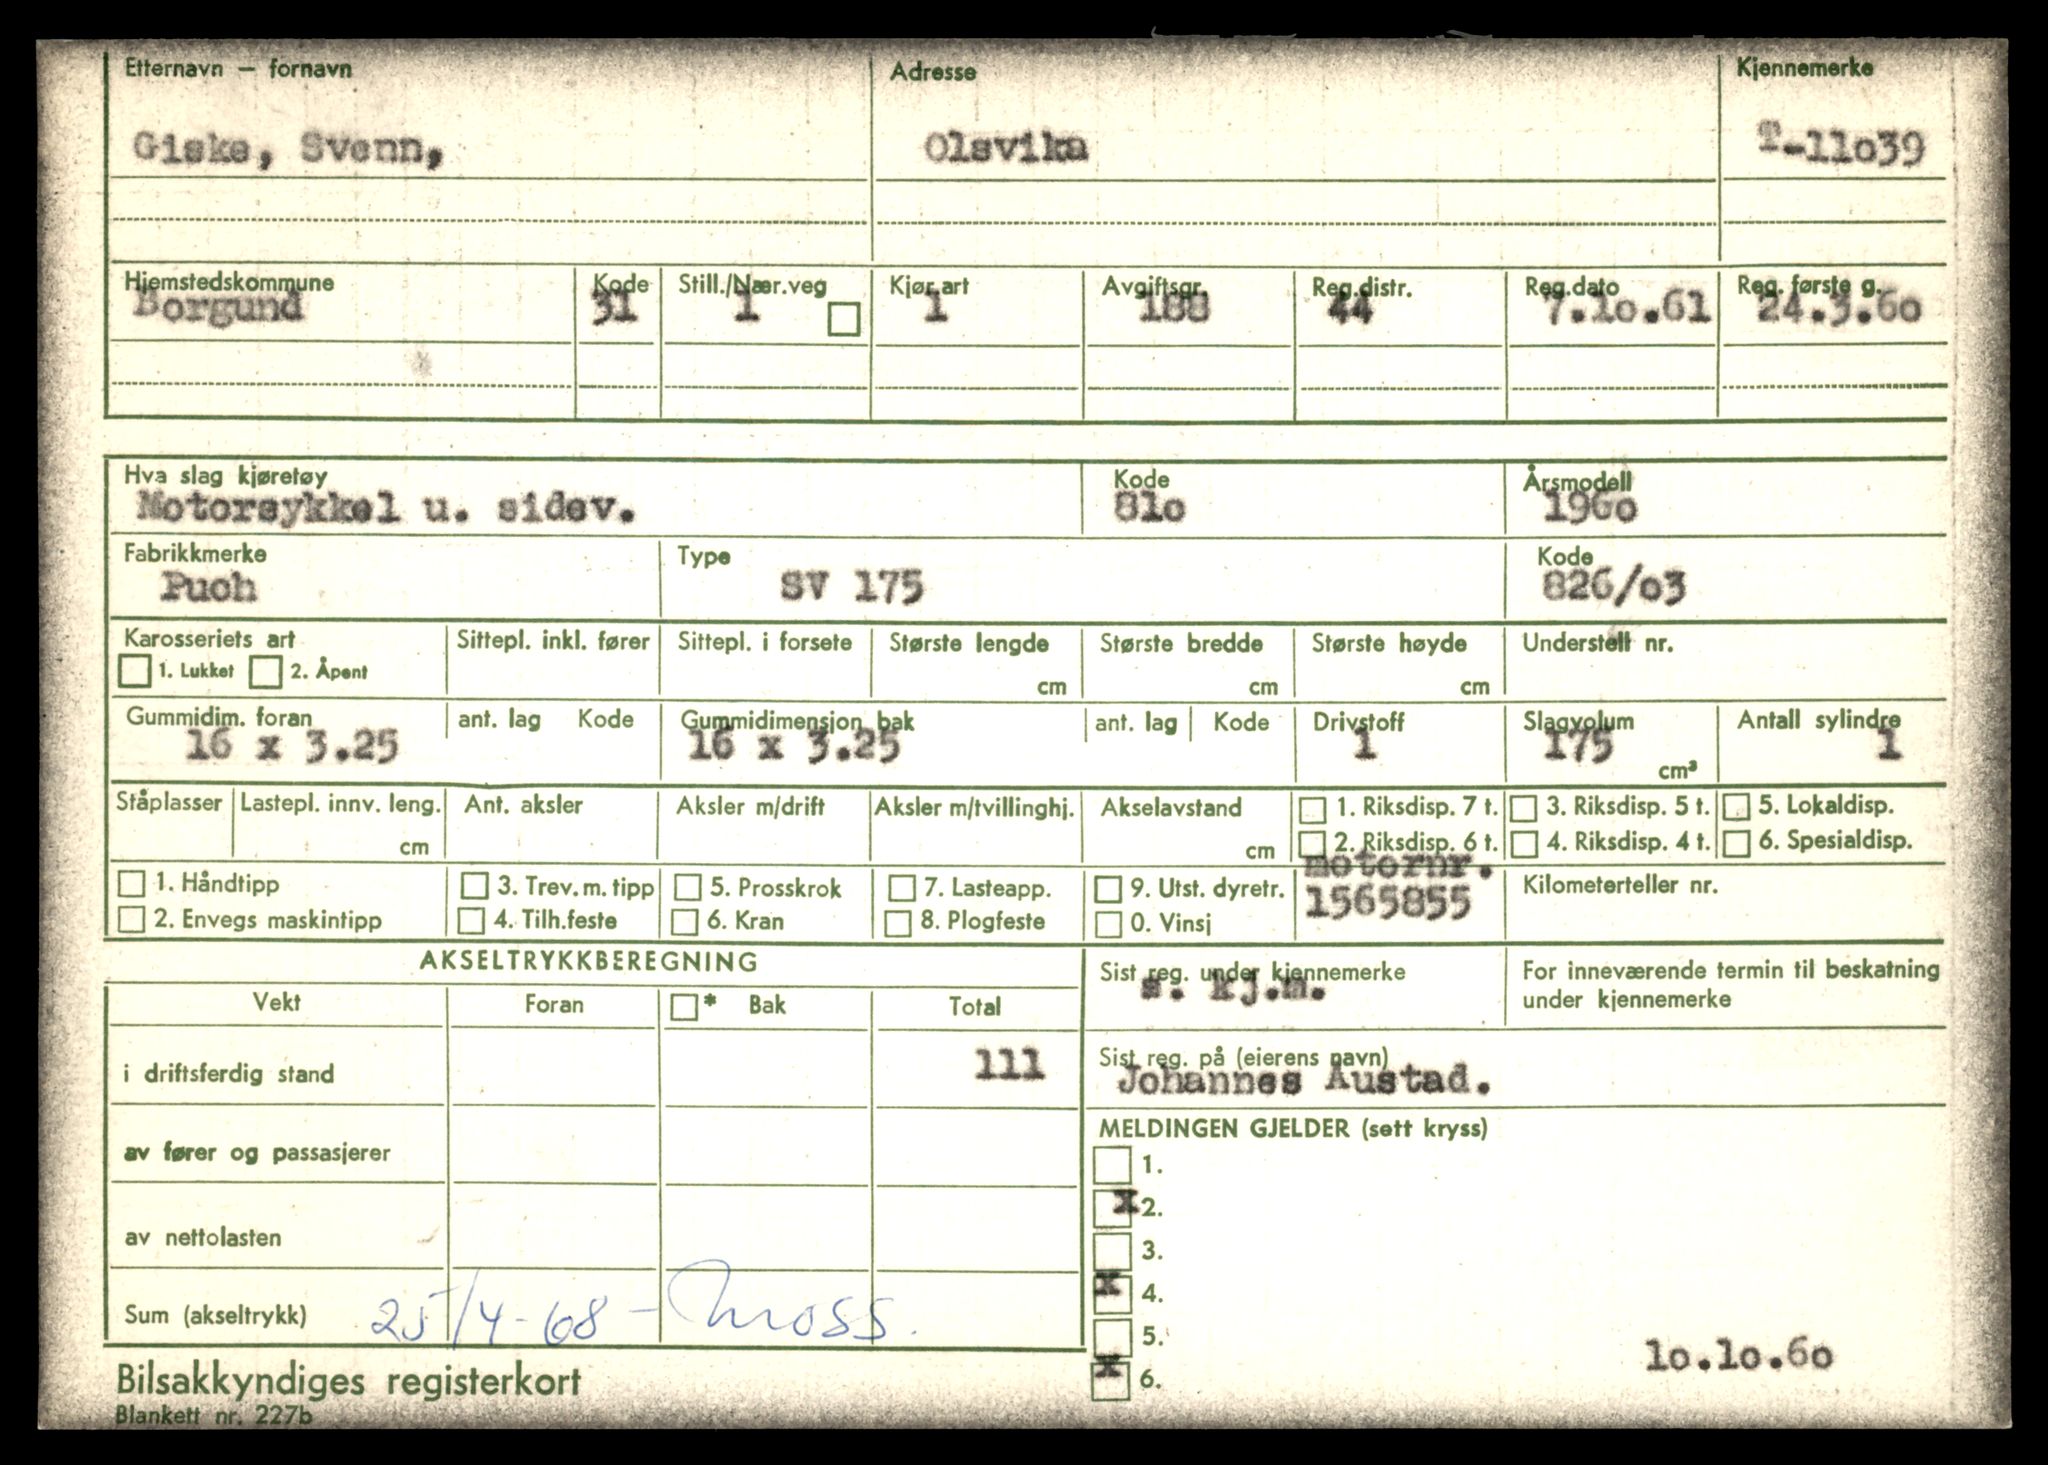 Etternavn – fornavn Adresse Kjennemerke
Giske, Svenn, Olsvika T-11o39
Hjemstedskommune Kode Still./Nær.veg Kjør.art Avgiftsgr. Reg.distr. Reg.dato Reg. første g.
Borgund 31 1 1 188 44 7.1o.61 24.3.6o
Hva slag kjøretøy Kode Årsmodell
Motorsykkel u. sidev. 81o 196o
Fabrikkmerke Type Kode
Puch SV 175 826/o3
Karosseriets art Sittepl. inkl. fører Sittepl. i forsete Største lengde Største bredde Største høyde Understell nr.
1. Lukket 2. Åpent cm cm cm
Gummidim. foran ant. lag Kode Gummidimensjon bak ant. lag Kode Drivstoff Slagvolum Antall sylindre
16 x 3.25 16 x 3.25 1 175 cm³ 1
Ståplasser Lastepl. innv. leng. Ant. aksler Aksler m/drift Aksler m/tvillinghj. Akselavstand 1. Riksdisp. 7 t. 3. Riksdisp. 5 t. 5. Lokaldisp.
cm cm 2. Riksdisp. 6 t. 4. Riksdisp. 4 t. 6. Spesialdisp.
motornr.
1. Håndtipp 3. Trev. m. tipp 5. Prosskrok 7. Lasteapp. 9. Utst. dyretr. 1565855 Kilometerteller nr.
2. Envegs maskintipp 4. Tilh.feste 6. Kran 8. Plogfeste 0. Vinsj
AKSELTRYKKBEREGNING Sist reg. under kjennemerke For inneværende termin til beskatning
s. kj.m. under kjennemerke
Vekt Foran * Bak Total
i driftsferdig stand 111 Sist reg. på (eierens navn)
Johannes Austad.
av fører og passasjerer MELDINGEN GJELDER (sett kryss)
1.
x 2.
av nettolasten 3.
x 4.
Sum (akseltrykk) 25/4-68 - Moss. 5.
x 6. 1o.1o.6o
Bilsakkyndiges registerkort
Blankett nr. 227b